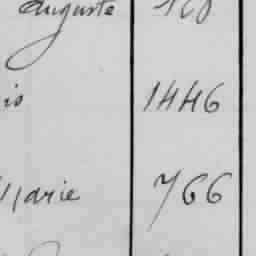 Auguste
is 1446
Marie 766